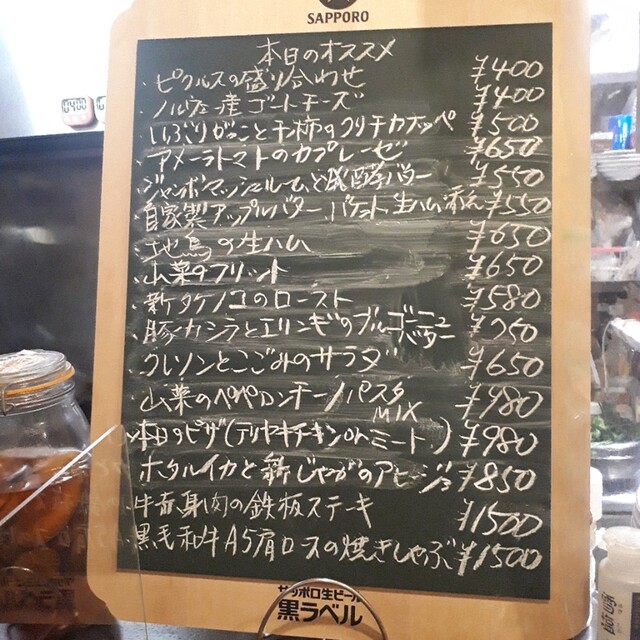 SAPPORO
本日のオススメ
・ピクルスの盛り合わせ ¥400
・ノルウェー産ゴートチーズ ¥400
・いぶりがっこと干柿のクリチカナッペ ¥500
・アメーラトマトのカプレーゼ ¥650
・ジャンボマッシュルームと発酵バター ¥550
・自家製アップルバター、バケット、生ハム添え ¥550
・地鳥の生ハム ¥650
・山菜のフリット ¥650
・新タケノコのロースト ¥580
・豚カシラとエリンギのブルゴーニュバター ¥750
・クレソンとこごみのサラダ ¥650
・山菜のペペロンチーノパスタ ¥980
・本日のピザ(テリヤキチキン or ミートMIX) ¥980
・ホタルイカと新じゃがのアヒージョ ¥850
・牛赤身肉の鉄板ステーキ ¥1500
・黒毛和牛A5肩ロースの焼きしゃぶ ¥1500
サッポロ生ビール
黒ラベル